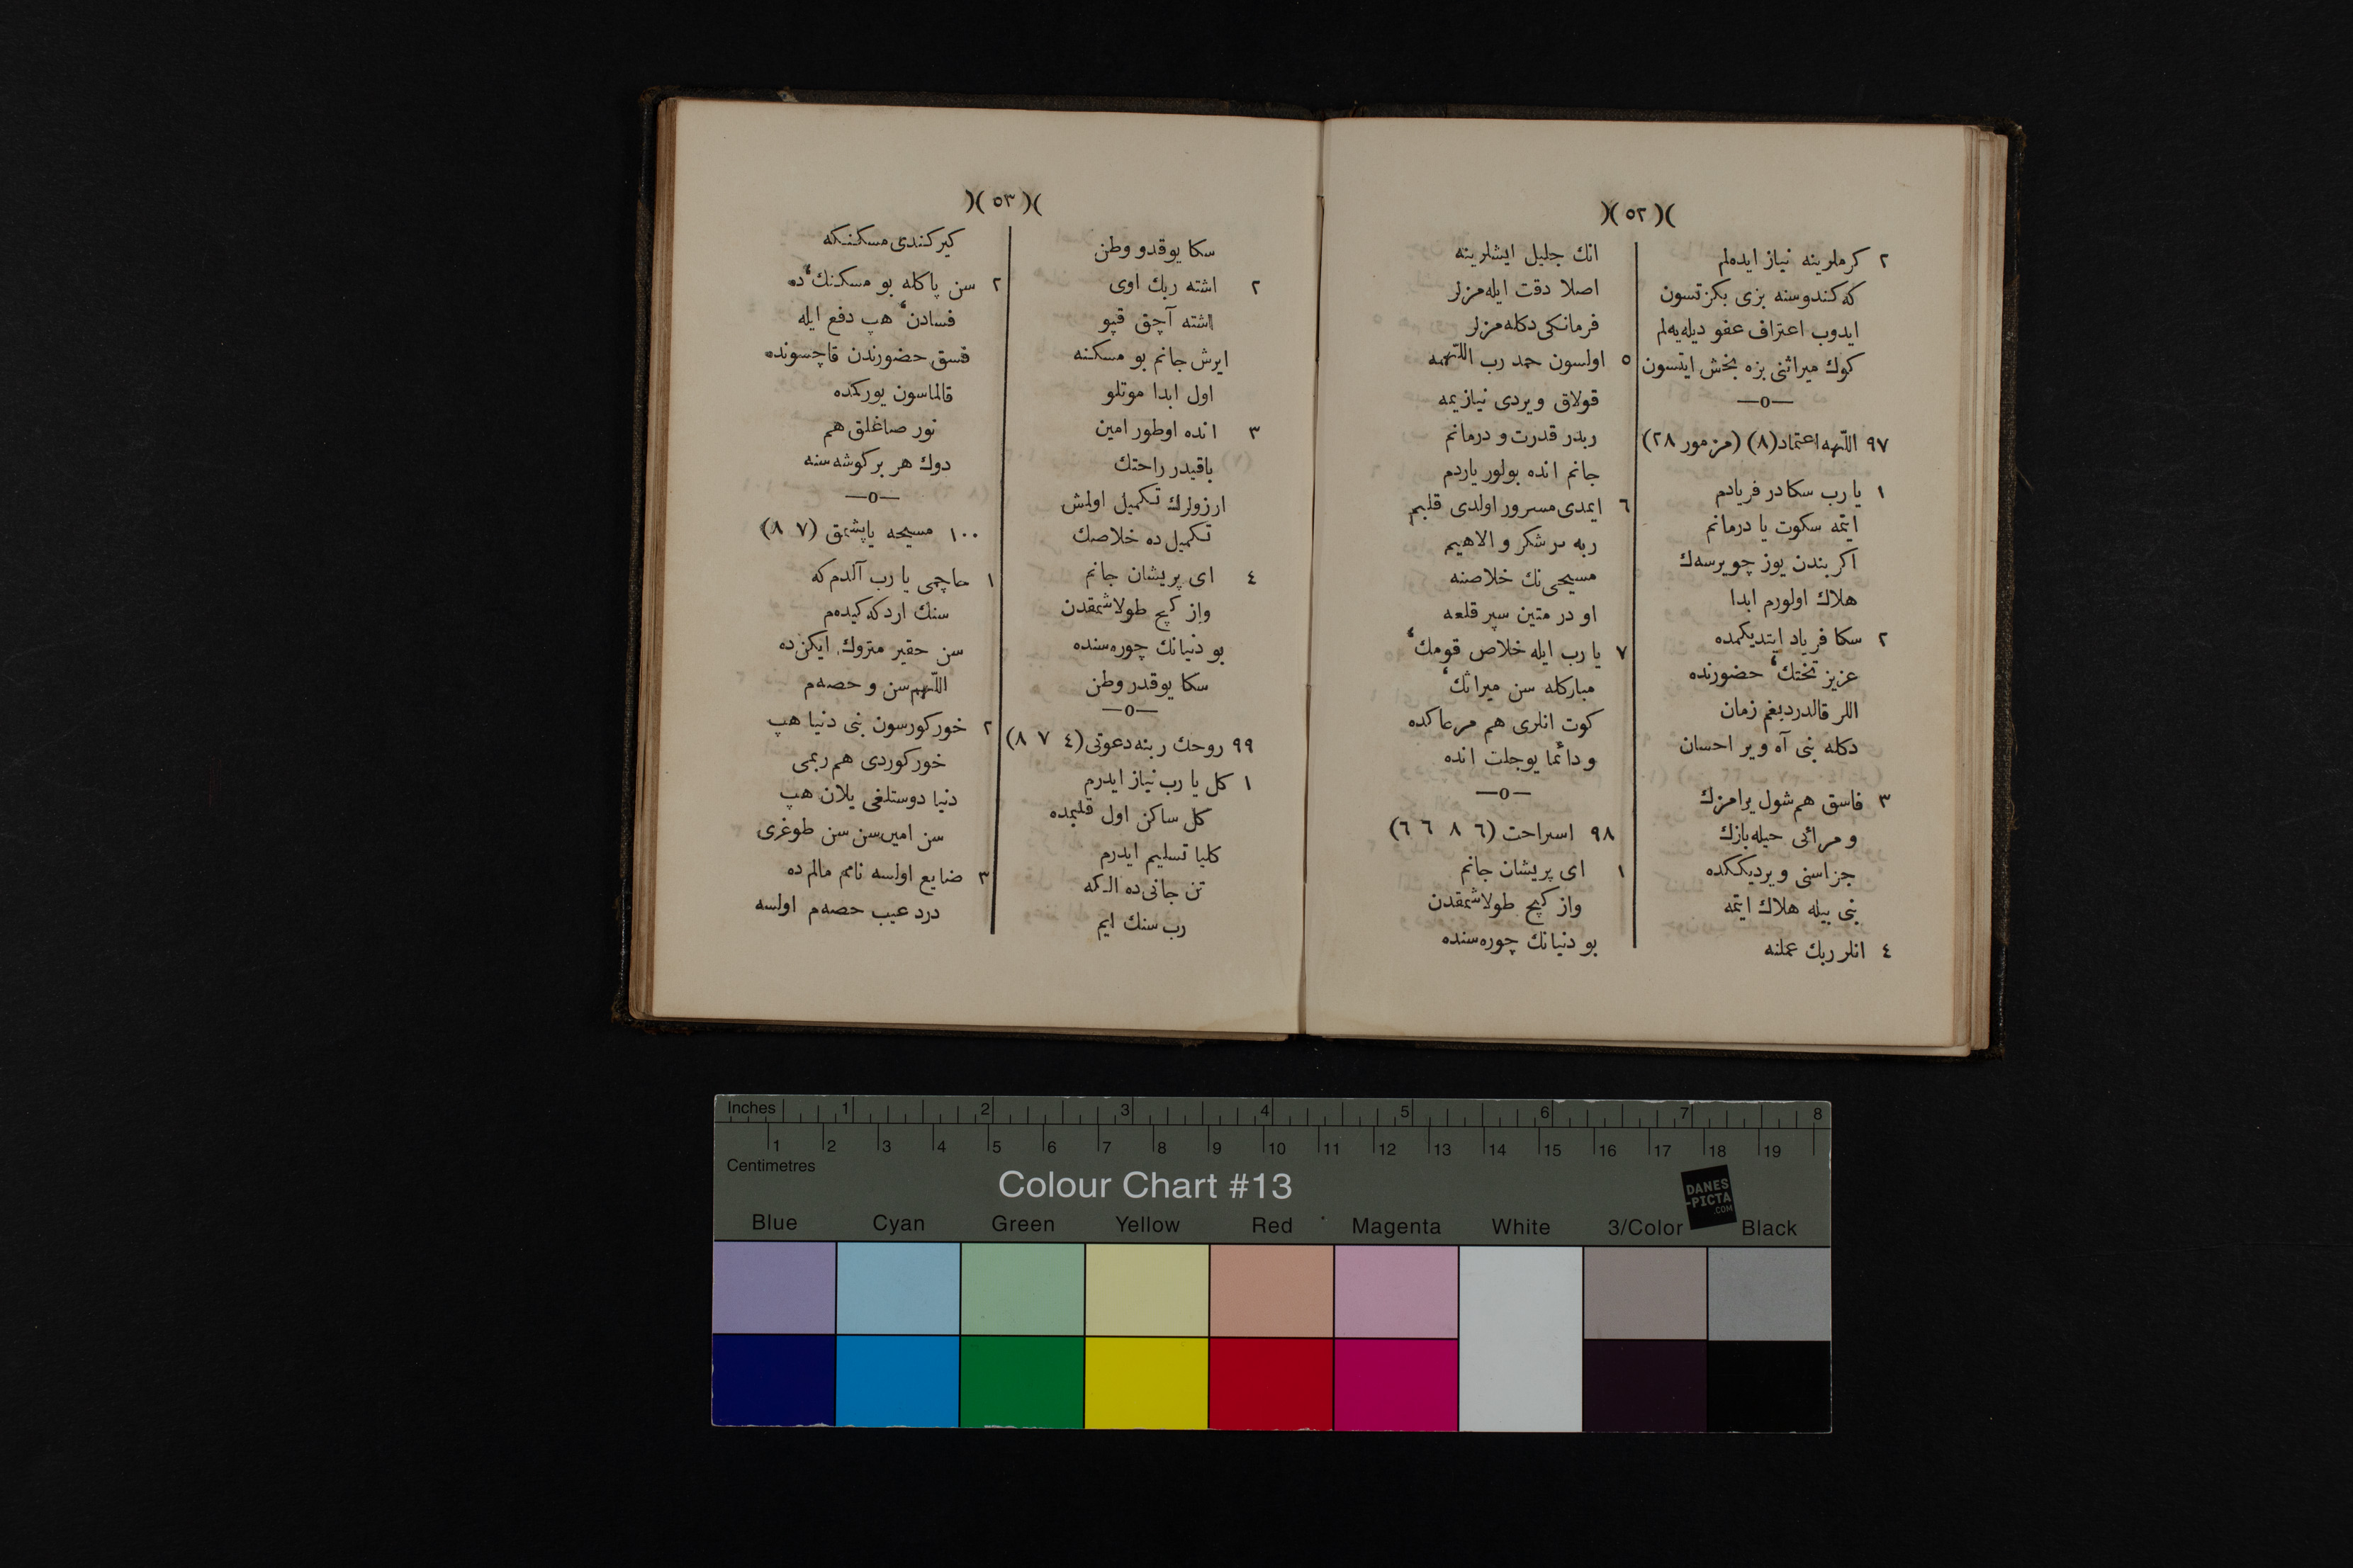 )( ٥٢ )(
٢ كرملرينه نياز ايده‌لم
كه كندوسنه بزى بكزتسون
ايدوب اعتراف عفو ديله‌يه‌لم
كوك ميراثنى بزه بخش ايتسون
—o—
٩٧ اللّٰهه اعتماد (٨) (مزمور ٢٨)
١ يا رب سكا در فريادم
ايتمه سكوت يا درمانم
اكر بندن يوز چويرسه‌ك
هلاك اولورم ابدا
٢ سكا فرياد ايتديكمده
عزيز تختك، حضورنده
اللر قالدرديغم زمان
دكله بنى آه وير احسان
٣ فاسق هم شول يرامزك
و مرائى حيله‌بازك
جزاسنى ويرديككده
بنى بيله هلاك ايتمه
٤ انلر ربك عملنه
انك جليل ايشلرينه
اصلا دقت ايله‌مزلر
فرمانكى دكله‌مزلر
٥ اولسون حمد رب اللّٰهمه
قولاق ويردى نيازيمه
ربدر قدرت و درمانم
جانم انده بولور ياردم
٦ ايمدى مسرور اولدى قلبم
ربه در شكر و الاهيم
مسيحى‌نك خلاصنه
او در متين سپر قلعه
٧ يا رب ايله خلاص قومك،
مباركله سن ميراثك،
كوت انلرى هم مرعاكده
و دائما يوجلت انده
—o—
٩٨ استراحت (٦ ٨ ٦ ٦)
١ اى پريشان جانم
واز كچ طولاشمقدن
بو دنيانك چوره‌سنده
)( ٥٣ )(
سكا يوقدو وطن
٢ اشته ربك اوى
اشته آچق قپو
ايرش جانم بو مسكنه
اول ابدا موتلو
٣ انده اوطور امين
باقيدر راحتك
ارزولرك تكميل اولمش
تكميل ده خلاصك
٤ اى پريشان جانم
واز كچ طولاشمقدن
بو دنيانك چوره‌سنده
سكا يوقدر وطن
—o—
٩٩ روحك ربنه دعوتى (٤ ٧ ٨)
١ كل يا رب نياز ايدرم
كل ساكن اول قلبمده
كليا تسليم ايدرم
تن جانى ده الـكه
رب سنك ايم
كير كندى مسكنكه
٢ سن پاكله بو مسكنك، ده
فسادن، هپ دفع ايله
فسق حضورندن قاچسونده
قالماسون يوركده
نور صاغلق هم
دوك هر بر كوشه‌سنه
—o—
١٠٠ مسيحه ياپشمق (٧ ٨)
١ حاچمى يا رب آلدم كه
سنك اردكه كيده‌م
سن حقير متروك ايكن ده
اللّٰهم سن و حصه‌م
٢ خور كورسون بنى دنيا هپ
خور كوردى هم ربمى
دنيا دوستلغى يلان هپ
سن امين سن سن طوغرى
٣ ضايع اولسه نامم مالم ده
درد عيب حصه‌م اولسه
Inches 1 2 3 4 5 6 7 8
1 2 3 4 5 6 7 8 9 10 11 12 13 14 15 16 17 18 19
Centimetres
Colour Chart #13
DANES
-PICTA
.COM
Blue Cyan Green Yellow Red Magenta White 3/Color Black